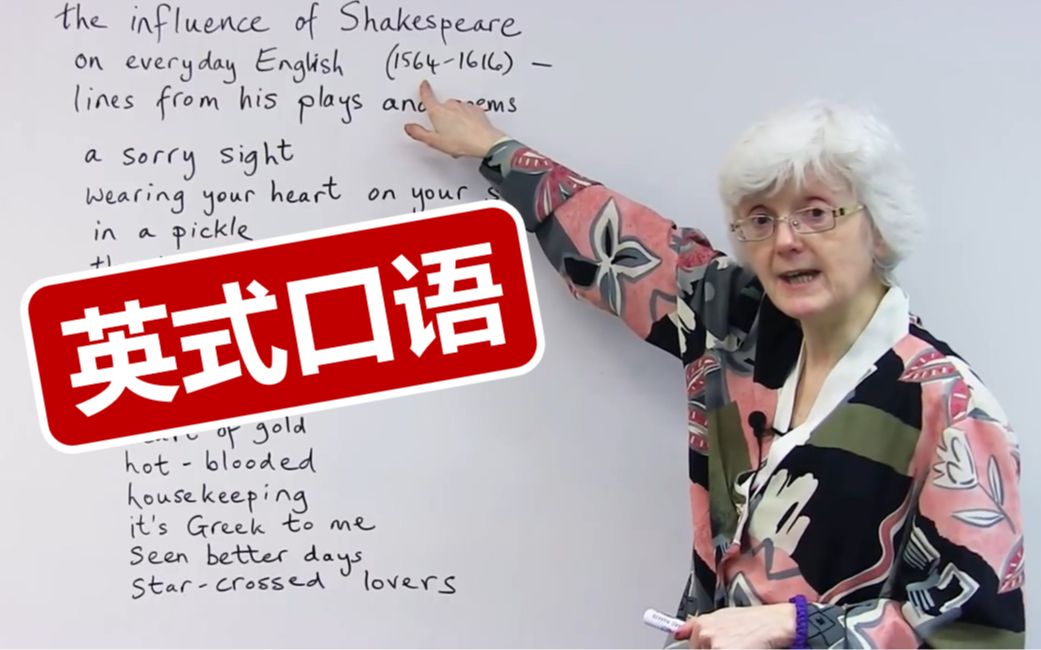 the influence of Shakespeare
on everyday English (1564-1616) –
lines from his plays and
a sorry sight
wearing your heart on your
in a pickle
英式口语
of gold
hot - blooded
housekeeping
it's Greek to me
Seen better days
Star-crossed lovers